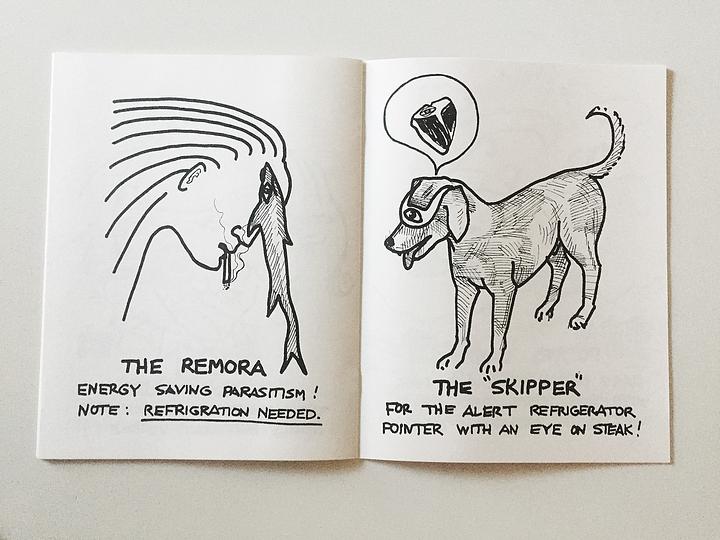 THE REMORA
ENERGY SAVING PARASITISM!
NOTE: REFRIGRATION NEEDED.
THE "SKIPPER"
FOR THE ALERT REFRIGERATOR
POINTER WITH AN EYE ON STEAK!